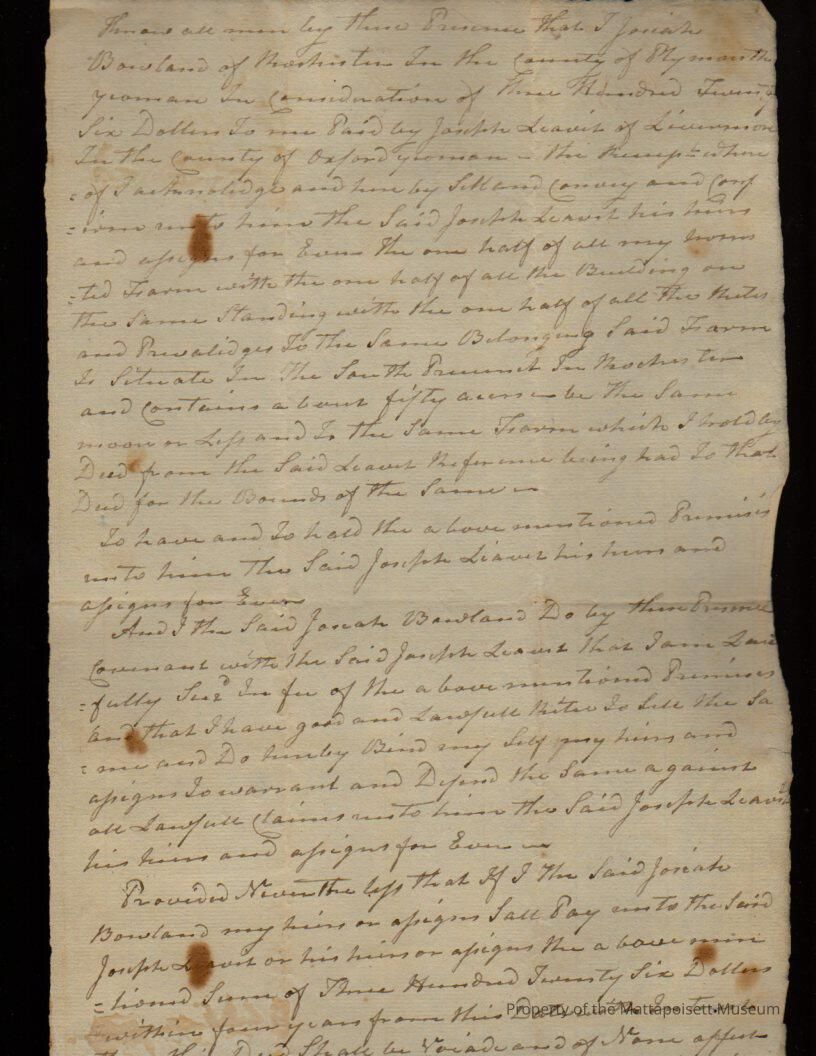 Know all men by these Presence That I Josiah
Bowland of Rochester In the County of Plymouth
yeoman In Consideration of Three Hundred Twenty
Six Dollers To me Paid by Joseph Leavit of Livermore
In the County of Oxford yeoman - the Recept where
= of I acknolidge and here by Sell and Convey and Conf
= irm unto him the Said Joseph Leavit his heirs
and assigns for Ever the one half of all my homs
= ted Farm with the one half of all the Building on
the Same Standing with the one half of all the Rites
and Prevalidges To the Same Belonging Said Farm
Is Situate In The South Precinct In Rochester
and Contains about fifty acers - be the Same
moor or Less and Is the Same Farm which I hold by
Deed from the Said Leavit Reference being had To that
Deed for the Bounds of the Same -
To have and To hold the above mentioned Premises
unto him the Said Joseph Leavit his heirs and
assigns for Ever
And I the Said Josiah Bowland Do by these Presence
Covenant with the Said Joseph Leavit that I am Law
= fully Seizd In fee of the above mentioned Premises
and that I have good and Lawfull Rite To Sell the Sa
= me and Do hereby Bind my Self my heirs and
assigns To warrant and Defend the Same against
all Lawfull Claims unto him the Said Joseph Leavit
his heirs and assigns for Ever -
Provided Never the less that If I the Said Josiah
Bowland my heirs or assigns Sall Pay unto the Said
Joseph Leavit or his heirs or assigns the above men
= tioned Sum of Three Hundred Twenty Six Dollers
within four years from this Date with Intrest
then this Deed Shall be Voide and of Non affect
Property of the Mattapoisett Museum